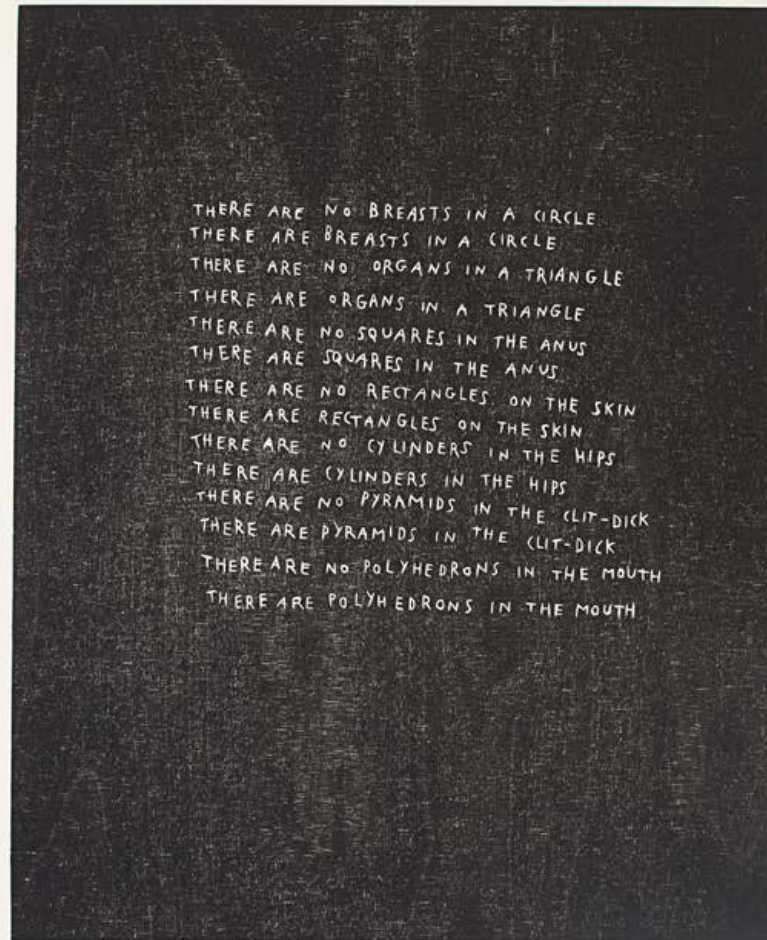 THERE ARE NO BREASTS IN A CIRCLE
THERE ARE BREASTS IN A CIRCLE
THERE ARE NO ORGANS IN A TRIANGLE
THERE ARE ORGANS IN A TRIANGLE
THERE ARE NO SQUARES IN THE ANUS
THERE ARE SQUARES IN THE ANUS
THERE ARE NO RECTANGLES ON THE SKIN
THERE ARE RECTANGLES ON THE SKIN
THERE ARE NO CYLINDERS IN THE HIPS
THERE ARE CYLINDERS IN THE HIPS
THERE ARE NO PYRAMIDS IN THE CLIT-DICK
THERE ARE PYRAMIDS IN THE CLIT-DICK
THERE ARE NO POLYHEDRONS IN THE MOUTH
THERE ARE POLYHEDRONS IN THE MOUTH